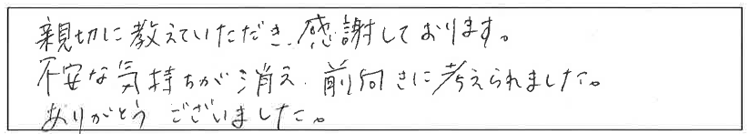 親切に教えていただき、感謝しております。
不安な気持ちが消え、前向きに考えられました。
ありがとうございました。